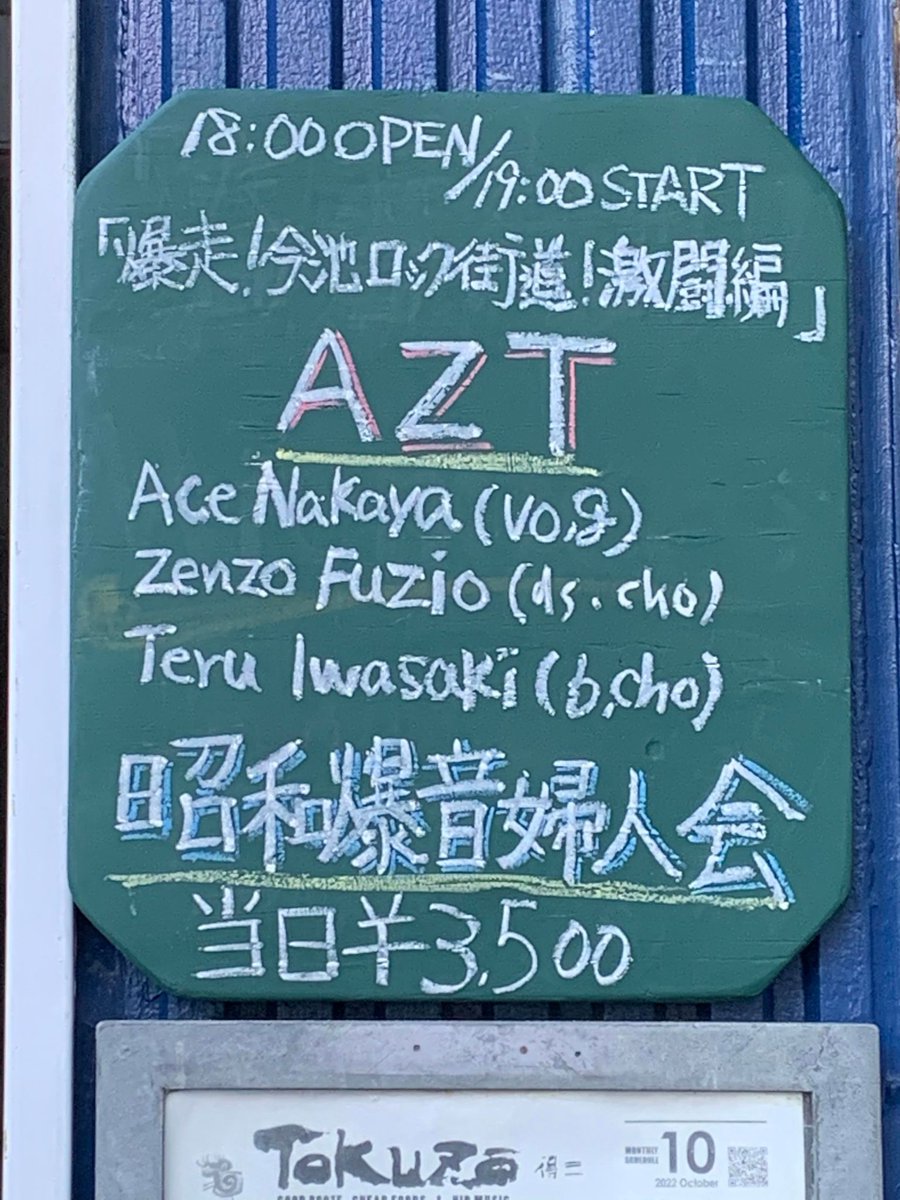 18:00 OPEN/19:00 START
「爆走!今池ロック街道!激闘編」
AZT
Ace Nakaya (vo,g)
Zenzo Fuzio (ds.cho)
Teru Iwasaki (b,cho)
昭和爆音婦人会
当日¥3,500
TOKUZO 得三
MONTHLY SCHEDULE 10
2022 October
GOOD ROOTS, CHEAP FOODS & HIP MUSIC